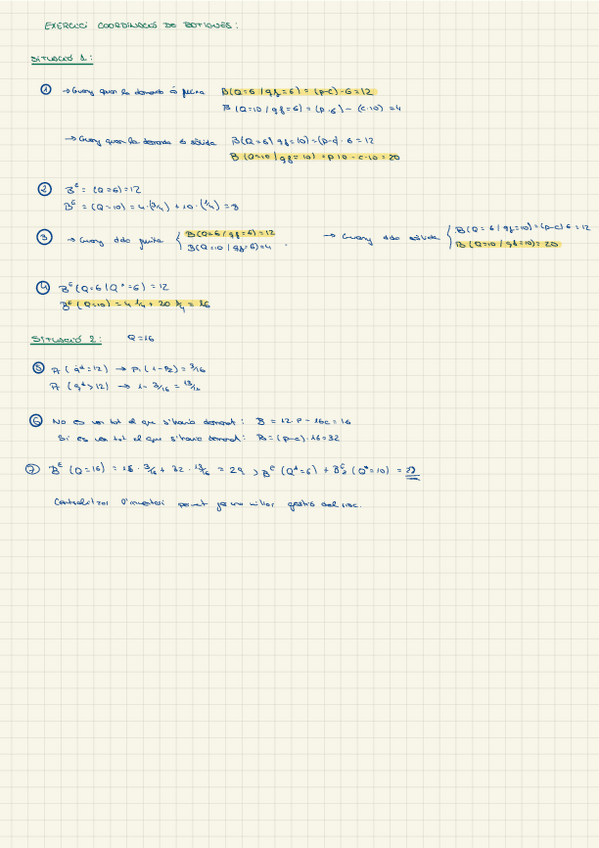 EXERCICI COORDINACIÓ DE BOTIGUES:
SITUACIÓ 1:
① → Guany quan la demanda és feixa B(Q=6/qf=6) = (p-c)·6=12
B(Q=10/qf=6) = (p·6) - (c·10) = 4
→ Guany quan la demanda és sòlida B(Q=6/qf=10) = (p-c)·6 = 12
B(Q=10/qf=10) = p·10 - c·10 = 20
② Bᴱ = (Q=6) = 12
Bᴱ = (Q=10) = 4·(3/4) + 20·(1/4) = 8
③ → Guany ddo feixa { B(Q=6/qf=6) = 12 → Guany ddo sòlida { B(Q=6/qf=10) = (p-c)·6 = 12
B(Q=10/qf=6) = 4 B(Q=10/qf=10) = 20
④ Bᴱ(Q=6/Q*=6) = 12
Bᴱ(Q=10) = 4·1/4 + 20·3/4 = 16
SITUACIÓ 2: Q=16
⑤ P(q*=12) → P1(1-P2) = 3/16
P(q*>12) → 1 - 3/16 = 13/16
⑥ No es ven tot el que s'havia demanat: B = 12·P - 16c = 16
Sí es ven tot el que s'havia demanat: B = (p-c)·16 = 32
⑦ Bᴱ(Q=16) = 16·3/16 + 32·13/16 = 29 > Bᴱ(Q*=6) + Bᴱ₂(Q*=10) =
Centralitzar l'inventari permet fer una millor gestió del risc.